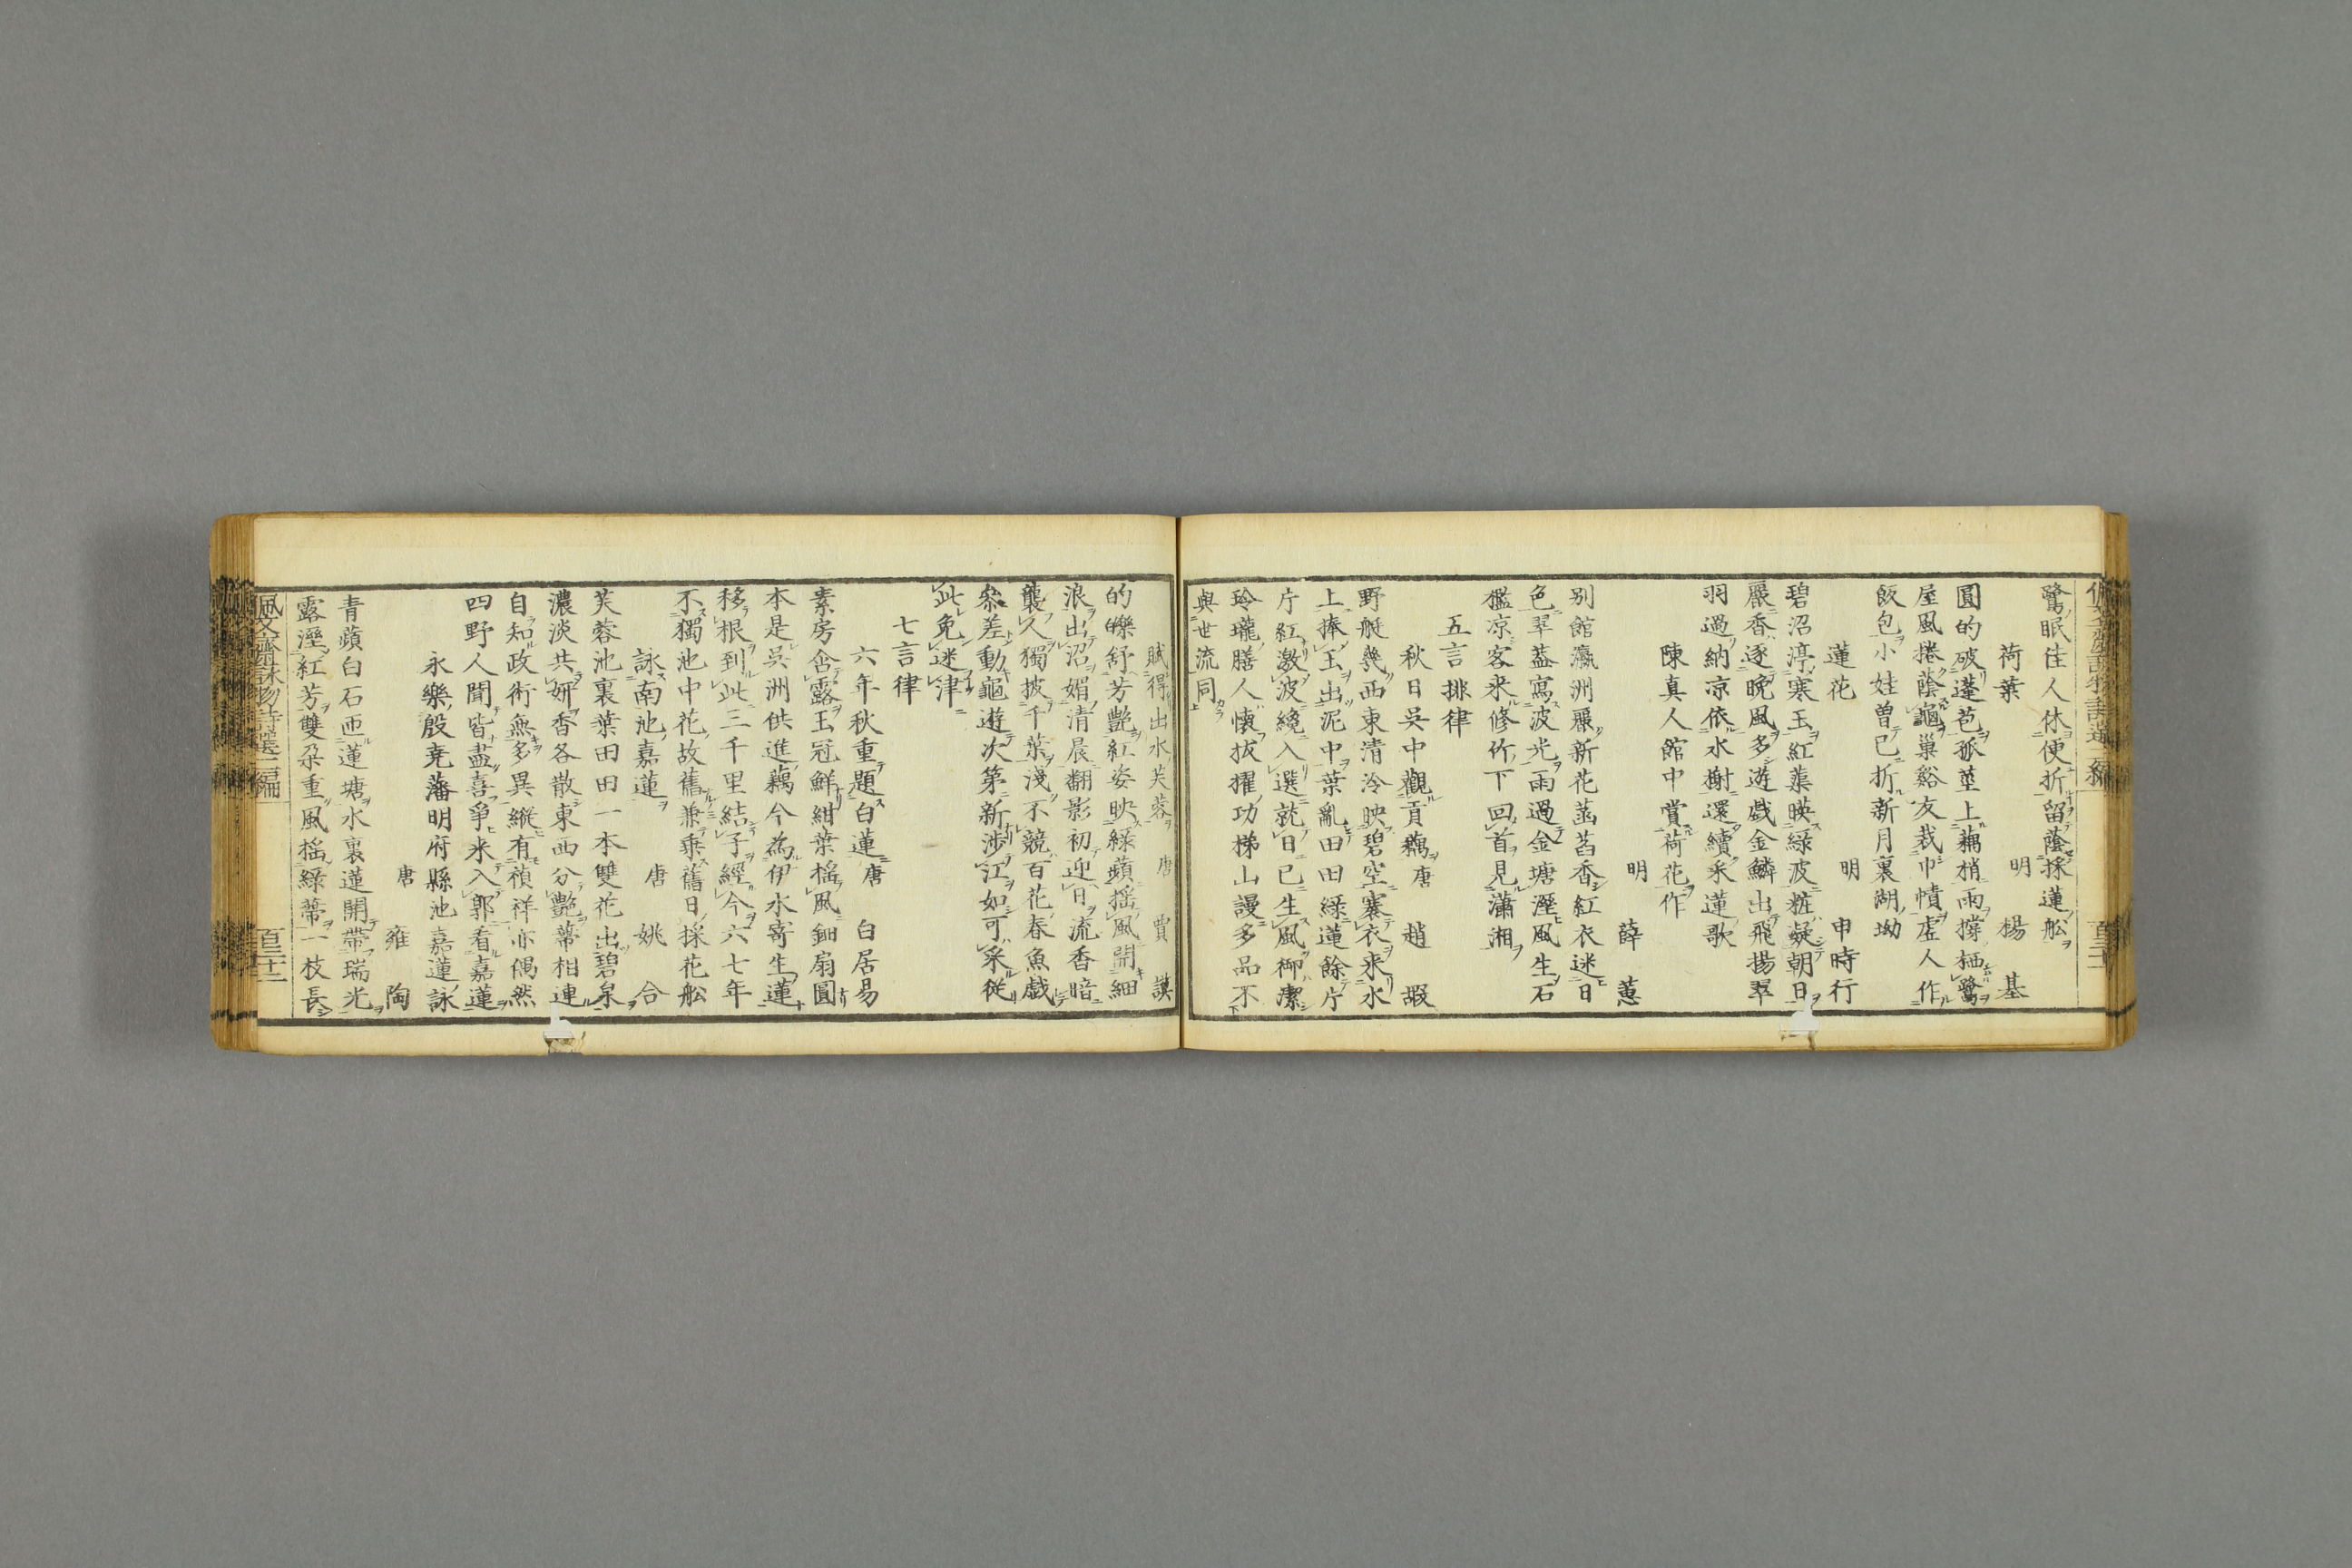 鷺眠佳人休便折留蔭採蓮舩
荷葉 明 楊基
圓的破蓬苞孤莖上藕梢雨撐栖鷺
屋風捲蔭龜巢谿友裁巾幘虛人作
飯包小娃曾已折新月裏湖坳
蓮花 明 申時行
碧沼渟寒玉紅蕖暎緑波粧凝朝日
麗香逐晚風多遊戯金鱗出飛揚翠
羽過納凉依水榭還續采蓮歌
陳真人館中賞荷花作
明 薛蕙
别館瀛洲麗新花菡萏香紅衣迷日
色翠葢寫波光雨過金塘溼風生石
檻凉客來修竹下回首見瀟湘
五言排律
秋日吳中觀貢藕 唐 趙嘏
野艇幾西東清泠映碧空褰衣來水
上捧玉出泥中葉亂田田緑蓮餘片
片紅激波纔入選就日已生風御潔
玲瓏膳人懷拔擢功梯山謾多品不
與世流同
賦得出水芙蓉 唐 賈謨
的皪舒芳艷紅姿映緑蘋揺風開細
浪出沼媚清晨翻影初迎日流香暗
襲人獨披千葉淺不競百花春魚戯
參差動龜遊次第新涉江如可采從
此免迷津
七言律
六年秋重題白蓮 唐 白居易
素房含露玉冠鮮紺葉揺風鈿扇圓
本是吳洲供進藕今為伊水寄生蓮
移根到此三千里結子經今六七年
不獨池中花故舊兼乘舊日採花舩
詠南池嘉蓮 唐 姚合
芙蓉池裏葉田田一本雙花出碧泉
濃淡共妍香各散東西分艷蔕相連
自知政術無多異縱有禎祥亦偶然
四野人聞皆盡喜爭来入郭看嘉蓮
永樂殷尭藩明府縣池嘉蓮詠
唐 雍陶
青蘋白石匝蓮塘水裏蓮開帶瑞光
露溼紅芳雙朶重風揺緑蔕一枝長
文齋詠物詩選二編